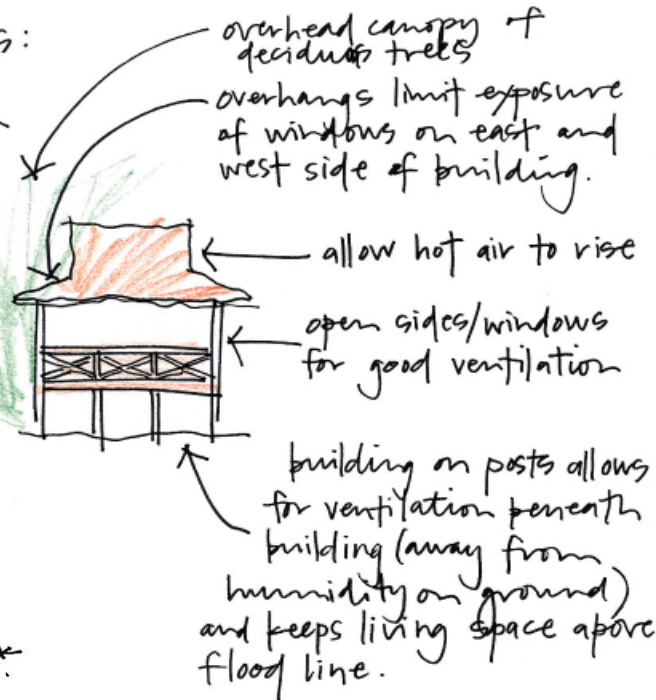 s:
overhead canopy of
deciduos trees
overhangs limit exposure
of windows on east and
west side of building.
allow hot air to rise
open sides/windows
for good ventilation
building on posts allows
for ventilation beneath
building (away from
humidity on ground)
and keeps living space above
flood line.